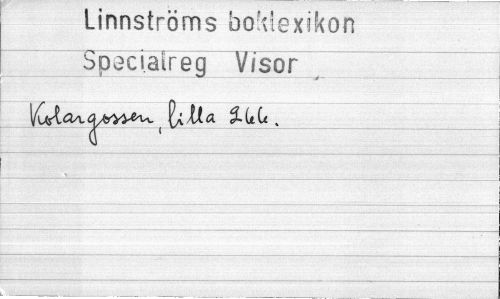 Linnströms boklexikon
Specialreg Visor
Kolargossen, lilla 266.